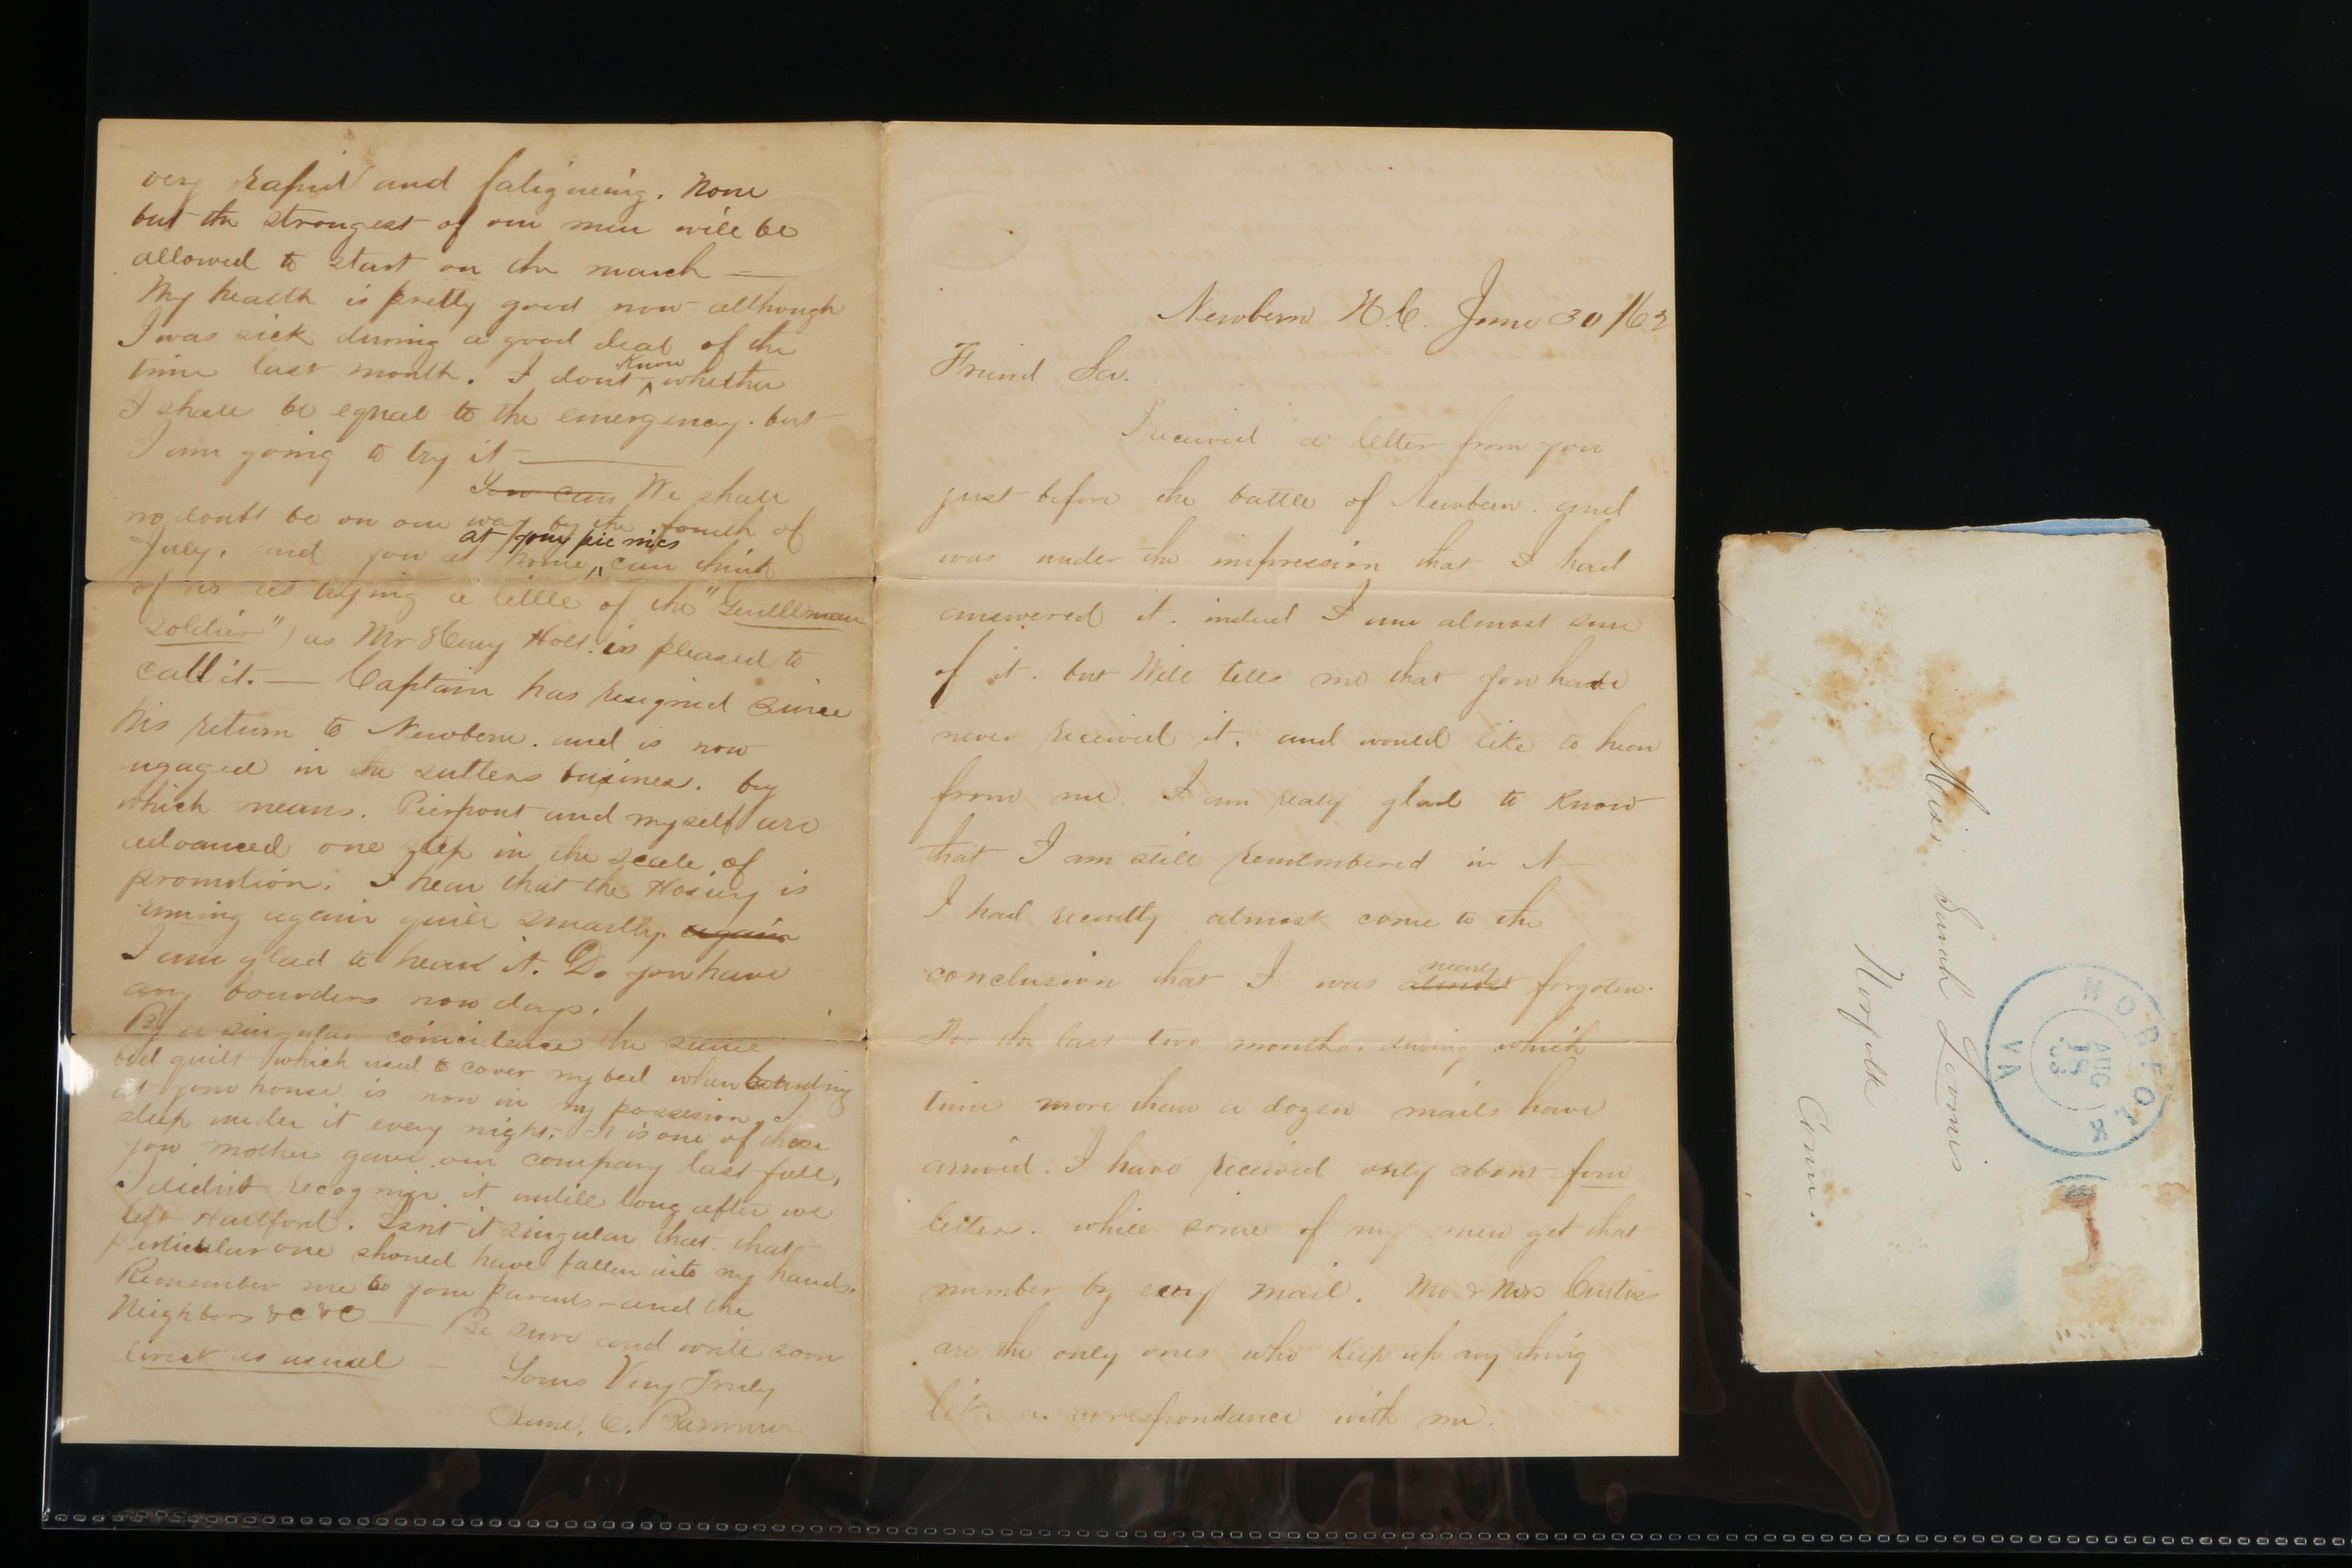 Newbern N.C. June 30/62
Friend Sa.
I received a letter from you
just before the battle of Newbern. and
was under the impression that I had
answered it. indeed I am almost sure
of it. but Will tells me that you have
never received it. and would like to hear
from me. I am realy glad to know
that I am still remembered in N—
I had recently almost come to the
conclusion that I was almost nearly forgoten.
For the last two months. during which
time more than a dozen mails have
arrived. I have received only about four
letters. while some of my men get that
number by every mail. Mr & Mrs Curtis
are the only ones who keep up any thing
like a correspondance with me.
very rapid and fatigueing. None
but the strongest of our men will be
allowed to start on the march —
My health is pretty good now although
I was sick during a good deal of the
time last month. I dont know whether
I shall be equal to the emergency. but
I am going to try it —
You can We shall
no doubt be on our way by the fourth of
July. and you at home, at your pic nics can think
of us as trying a little of the "Gentleman
soldier") as Mr Henry Holt. is pleased to
call it. — Captain has resigned since
his return to Newbern. and is now
engaged in the sutlers business. by
which means. Pierpont and myself are
advanced one step in the scale of
promotion. I hear that the Hosiery is
runing again quite smartly. again
I am glad to hear it. Do you have
any bourders now days.
By a singular coincidence the same
bed quilt which used to cover my bed when boarding
at your house is now in my possession, I
sleep under it every night. It is one of those
you mother gave our company last fall,
I didnt recognize it untill long after we
left Hartford. Isn't it singular that. that
perticular one should have fallen into my hands.
Remember me to your parents — and the
Neighbors &c &c — Be sure and write soon
direct as usual —
Yours Very Truly
C.
Miss Sarah Loomis
Norfolk
Conn.
NORFOLK
AUG
18
63
VA